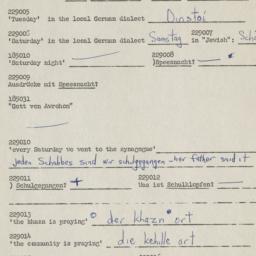 229005
'Tuesday' in the local German dialect Dinstoi
229006 229007
'Saturday' in the local German dialect Samstag in "Jewish":
185010 229008
'Saturday night' )Speesnacht?
229009
Ausdrücke mit Speesnacht?
185031
"Gott von Avrohom"
229010
'every Saturday we went to the synagogue'
jeden Schabbes sind mir schulgegangen - her father said it
229011 229012
) Schulegangen? + Was ist Schulklopfen?
229013
'the khazn is praying' der khazn ort
229014
'the community is praying' die kehille ort